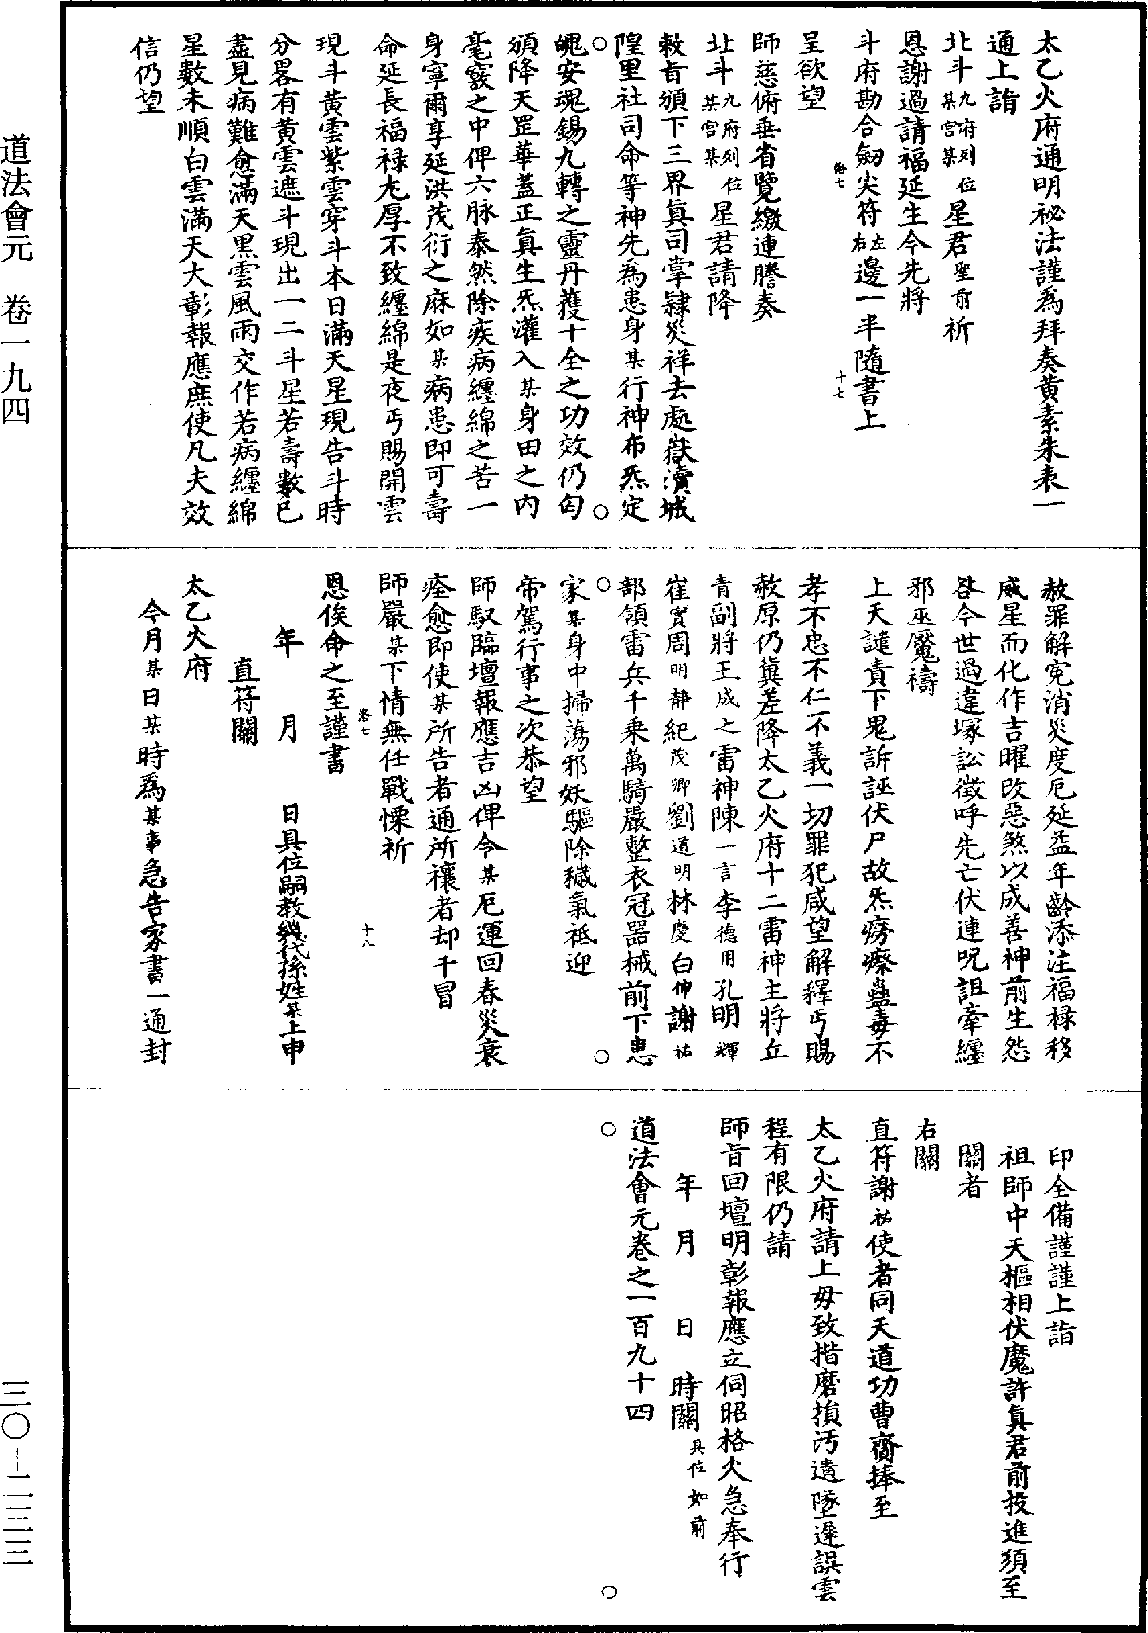 道法會元　卷一九四
太乙火府通明祕法謹為拜奏黃素朱表一
通上詣
北斗九宮某府列位星君聖前祈
恩謝過請福延生今先將
斗府勘合劒尖符左右邊一半隨書上
卷七
十七
呈欲望
師慈俯垂省覽繳連謄奏
北斗九宮某府列位星君請降
敕旨頒下三界真司掌隸災祥去處嶽瀆城
隍里社司命等神先為患身某行神布炁定
魄安魂錫九轉之靈丹獲十全之功效仍匄
頒降天罡華蓋正真生炁灌入某身田之内
毫竅之中俾六脉泰然除疾病纏綿之苦一
身寧爾享延洪茂衍之庥如某病患即可壽
命延長福禄尤厚不致纏綿是夜丐賜開雲
現斗黃雲紫雲穿斗本日滿天星現告斗時
分畧有黃雲遮斗現出一二斗星若壽數已
盡見病難愈滿天黑雲風雨交作若病纏綿
星數未順白雲滿天大彰報應庶使凡夫效
信仍望
赦罪解冤消災度厄延益年齡添注福祿移
威星而化作吉曜改惡煞以成善神前生怨
咎今世過違塚訟徵呼先亡伏連呪詛牽纏
邪巫魘禱
上天譴責下鬼訴誣伏尸故炁癆瘵蠱毒不
孝不忠不仁不義一切罪犯咸望解釋丐賜
赦原仍冀差降太乙火府十二雷神主將丘
青副將王成之雷神陳一言李德用孔明輝
崔實周明靜紀茂卿劉道明林慶白伸謝祐
部領雷兵千乘萬騎嚴整衣冠器械前下患
家某身中掃蕩邪妖驅除穢氣祗迎
帝駕行事之次恭望
師馭臨壇報應吉凶俾令某厄運回春災衰
痊愈即使某所告者通所禳者却干冒
師嚴某下情無任戰慄祈
卷七
十八
恩俟命之至謹書
年　月　日具位嗣教幾代孫姓某上申
直符關
太乙火府
今月某日某時為某事急告家書一通封
印全備謹謹上詣
祖師中天樞相伏魔許真君前投進須至
關者
右關
直符謝祐使者同天道功曹齎捧至
太乙火府請上毋致揩磨損汚遺墜遲誤雲
程有限仍請
師旨回壇明彰報應立伺昭格火急奉行
年　月　日　時關具位如前
道法會元卷之一百九十四
三〇-二三三